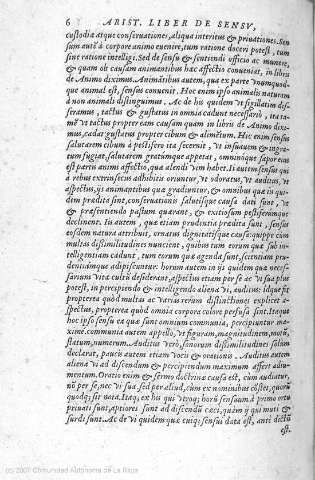 6 ARIST. LIBER DE SENSV,
custodiæ atque conseruationes, aliqua interitus & priuationes. Sen
sum autē à corpore animo euenire, tum ratione doceri potest, tum
sine ratione intelligi. Sed de sensu & sentiendi officio ac munere,
& quam ob causam animantibus hæc affectio conueniat, in libris
de Animo diximus. Animātibus autem, qua ex parte vnumquod-
que animal est, sensus conuenit. Hoc enim ipso animalis naturam
à non animali distinguimus. Ac de his quidem vt sigillatim dis-
seramus, tactus & gustatus in omnia cadunt necessariò,
tactus propter eam causam quam in libris de Animo dixi-
mus, gustatus propter cibum & alimētum. Hic enim sensus
salutarem cibum à pestifero ita secernit, vt insuauem & ingra-
tum fugiat, salutarem gratumque appetat, omninoque sapor eius
est partis animi affectio, quæ alendi vim habet. Ii autem sensus qui
à rebus extrinsecus adhibitis oriuntur, vt odoratus, vt auditus, vt
aspectus, iis animantibus quæ gradiuntur, & omnibus quæ iis qui-
dem prædita sint, conseruationis salutisque causa dati sunt, vt
& præsentiendo pastum quærant, & exitiosum pestiferumque
declinent. Iis autem, quæ etiam prudentia prædita sunt, sensus
eosdem natura attribuit, ornatus dignitatisque causa: nempe cum
multas dissimilitudines nuncient, quibus tum eorum quæ sub in-
telligentiam cadunt, tum eorum quæ agenda sunt, scientiam pru-
dentiamque adipiscuntur: horum autem in iis quidem quæ neces-
sarium vitæ cultū desiderant, aspectus etiam per se ac vi sua plus
potest, in percipiendo & intelligendo aliena vi, auditus: idque fit
propterea quòd multas ac varias rerum distinctiones explicet a-
spectus, propterea quòd omnia corpora colore perfusa sint. Itaque
hoc ipso sensu ea quæ sunt omnium communia, percipiuntur ma-
ximè. communia autem appello, vt figuram, magnitudinem, motū,
statum, numerum. Auditus verò, sonorum dissimilitudines solùm
declarat, paucis autem etiam vocis & orationis. Auditus autem
aliena vi ad discendum & percipiendum maximum affert adiu-
mentum. Oratio enim & sermo doctrinæ causa est, cùm auditur,
nō per se, nec vi sua, sed per aliud, cùm ex nominibus cōstet, quorū
quodque sit nota. Itaque, ex his qui vtroque horū sensuum à primo ortu
priuati sunt, aptiores sunt ad discendū cæci, quàm ij qui muti &
surdi sunt. Ac de vi quidem quæ cuique sensui data est, anteà dictū
est.
(c) 2007 Comunidad Autónoma de La Rioja